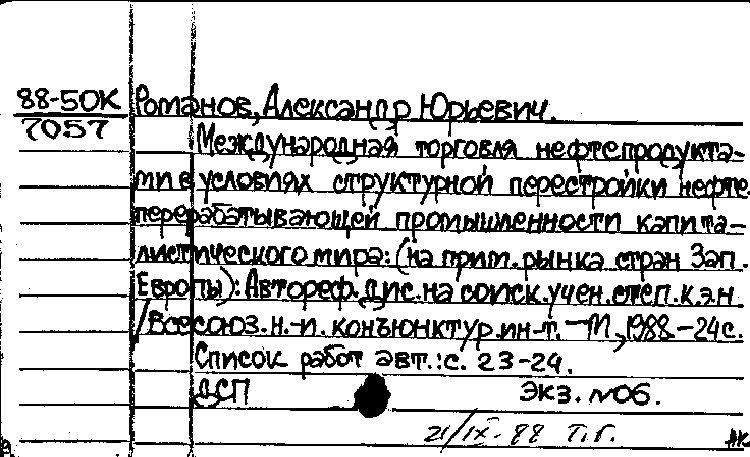 88-50К Романов, Александр Юрьевич.
7057
Международная торговля нефтепродукта-
ми в условиях структурной перестройки нефте
перерабатывающей промышленности капита-
листического мира: (на прим. рынка стран Зап.
Европы): Автореф. дис. на соиск. учен. степ. к.э.н
/Всесоюз. н.-и. конъюнктур. ин-т. -М., 1988.-24с.
Список работ авт.: с. 23-24.
ДСП Экз. №06.
21/IX-88 Т.Г.